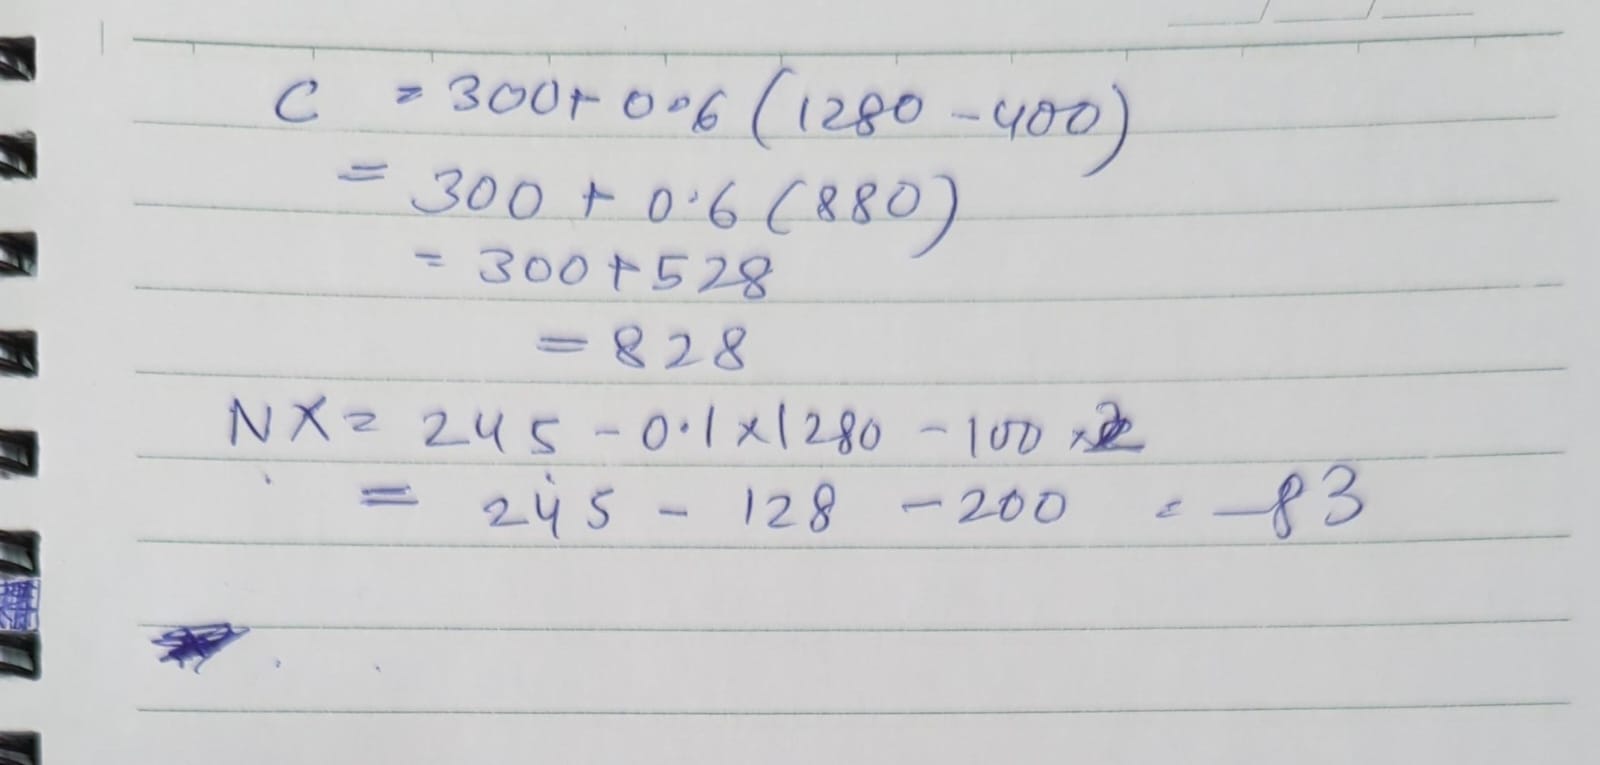 C = 300+ 0.6 (1280 - 400)
= 300 + 0.6 (880)
= 300 + 528
= 828
NX = 245 - 0.1 x 1280 - 100 x 2
= 245 - 128 - 200 = -83